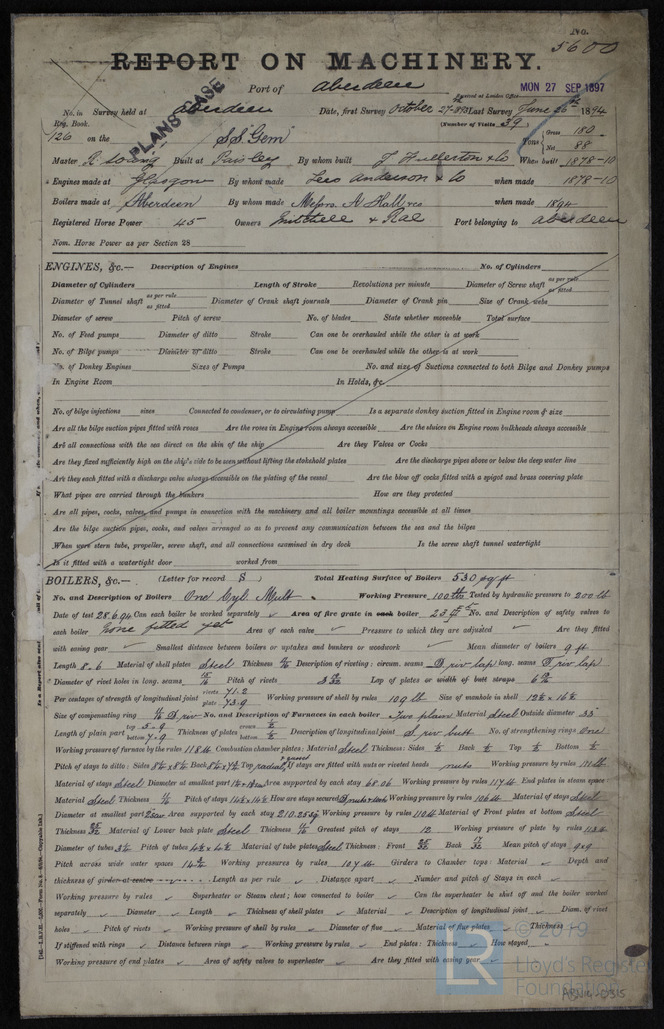 No.
5600
REPORT ON MACHINERY.
Port of Aberdeen
Received at London Office MON 27 SEP 1897
PLANS CASE
No. in Survey held at Aberdeen Date, first Survey October 27th 1893 Last Survey June 26th 1894
Reg. Book. (Number of Visits 39)
126 on the S.S. Gem Tons Gross 180
Net 88
Master Built at Paisley By whom built J. Fullerton & Co When built 1878-10
Engines made at Glasgow By whom made Lees Anderson & Co when made 1878-10
Boilers made at Aberdeen By whom made Messrs. A Hall & Co when made 1894
Registered Horse Power 45 Owners Mitchell & Rae Port belonging to Aberdeen
Nom. Horse Power as per Section 28
ENGINES, &c.— Description of Engines No. of Cylinders
Diameter of Cylinders Length of Stroke Revolutions per minute Diameter of Screw shaft as per rule as fitted
Diameter of Tunnel shaft as per rule as fitted Diameter of Crank shaft journals Diameter of Crank pin Size of Crank webs
Diameter of screw Pitch of screw No. of blades State whether moveable Total surface
No. of Feed pumps Diameter of ditto Stroke Can one be overhauled while the other is at work
No. of Bilge pumps Diameter of ditto Stroke Can one be overhauled while the other is at work
No. of Donkey Engines Sizes of Pumps No. and size of Suctions connected to both Bilge and Donkey pumps
In Engine Room In Holds, &c.
No. of bilge injections sizes Connected to condenser, or to circulating pump Is a separate donkey suction fitted in Engine room & size
Are all the bilge suction pipes fitted with roses Are the roses in Engine room always accessible Are the sluices on Engine room bulkheads always accessible
Are all connections with the sea direct on the skin of the ship Are they Valves or Cocks
Are they fixed sufficiently high on the ship's side to be seen without lifting the stokehold plates Are the discharge pipes above or below the deep water line
Are they each fitted with a discharge valve always accessible on the plating of the vessel Are the blow off cocks fitted with a spigot and brass covering plate
What pipes are carried through the bunkers How are they protected
Are all pipes, cocks, valves, and pumps in connection with the machinery and all boiler mountings accessible at all times
Are the bilge suction pipes, cocks, and valves arranged so as to prevent any communication between the sea and the bilges
When were stern tube, propeller, screw shaft, and all connections examined in dry dock Is the screw shaft tunnel watertight
Is it fitted with a watertight door worked from
BOILERS, &c.— (Letter for record S) Total Heating Surface of Boilers 530 sq ft
No. and Description of Boilers One Cyl. Mult. Working Pressure 100 lbs Tested by hydraulic pressure to 200 lb
Date of test 28.6.94 Can each boiler be worked separately ✓ Area of fire grate in each boiler 23 No. and Description of safety valves to
each boiler None fitted yet Area of each valve ✓ Pressure to which they are adjusted ✓ Are they fitted
with easing gear ✓ Smallest distance between boilers or uptakes and bunkers or woodwork ✓ Mean diameter of boilers 9 ft
Length 8-6 Material of shell plates Steel Thickness Description of riveting: circum. seams D. riv lap long. seams D. riv lap
Diameter of rivet holes in long. seams Pitch of rivets Lap of plates or width of butt straps
Per centages of strength of longitudinal joint rivets 71.2 plate 73.9 Working pressure of shell by rules 109 lb Size of manhole in shell 12½ x 16½
Size of compensating ring No. and Description of Furnaces in each boiler Two plain Material Steel Outside diameter 33"
Length of plain part top 5-9 bottom 7-9 Thickness of plates crown bottom Description of longitudinal joint S. riv butt No. of strengthening rings One
Working pressure of furnace by the rules 118 lb Combustion chamber plates: Material Steel Thickness: Sides ½ Back ½ Top ½ Bottom ½
Pitch of stays to ditto: Sides 8½ x 8½ Back 8½ x 7½ Top radial If stays are fitted with nuts or riveted heads nuts Working pressure by rules 111 lb
Material of stays Steel Diameter at smallest part Area supported by each stay 68.06 Working pressure by rules 117 lb End plates in steam space
Material Steel Thickness Pitch of stays 14½ x 14½ How are stays secured D. nuts Working pressure by rules 106 lb Material of stays Steel
Diameter at smallest part Area supported by each stay 210.25 sq Working pressure by rules 110 lb Material of Front plates at bottom Steel
Thickness Material of Lower back plate Steel Thickness Greatest pitch of stays 12 Working pressure of plate by rules 113 lb
Diameter of tubes 3½ Pitch of tubes 4½ x 4½ Material of tube plates Steel Thickness: Front Back Mean pitch of stays 9 x 9
Pitch across wide water spaces Working pressures by rules 107 lb Girders to Chamber tops: Material ✓ Depth and
thickness of girder at centre Length as per rule ✓ Distance apart ✓ Number and pitch of Stays in each ✓
Working pressure by rules ✓ Superheater or Steam chest; how connected to boiler ✓ Can the superheater be shut off and the boiler worked
separately ✓ Diameter ✓ Length ✓ Thickness of shell plates ✓ Material ✓ Description of longitudinal joint ✓ Diam. of rivet
holes ✓ Pitch of rivets ✓ Working pressure of shell by rules ✓ Diameter of flue ✓ Material of flue plates ✓ Thickness
If stiffened with rings ✓ Distance between rings ✓ Working pressure by rules ✓ End plates: Thickness ✓ How stayed
Working pressure of end plates ✓ Area of safety valves to superheater ✓ Are they fitted with easing gear ✓
LR
© 2019
Lloyd's Register
Foundation